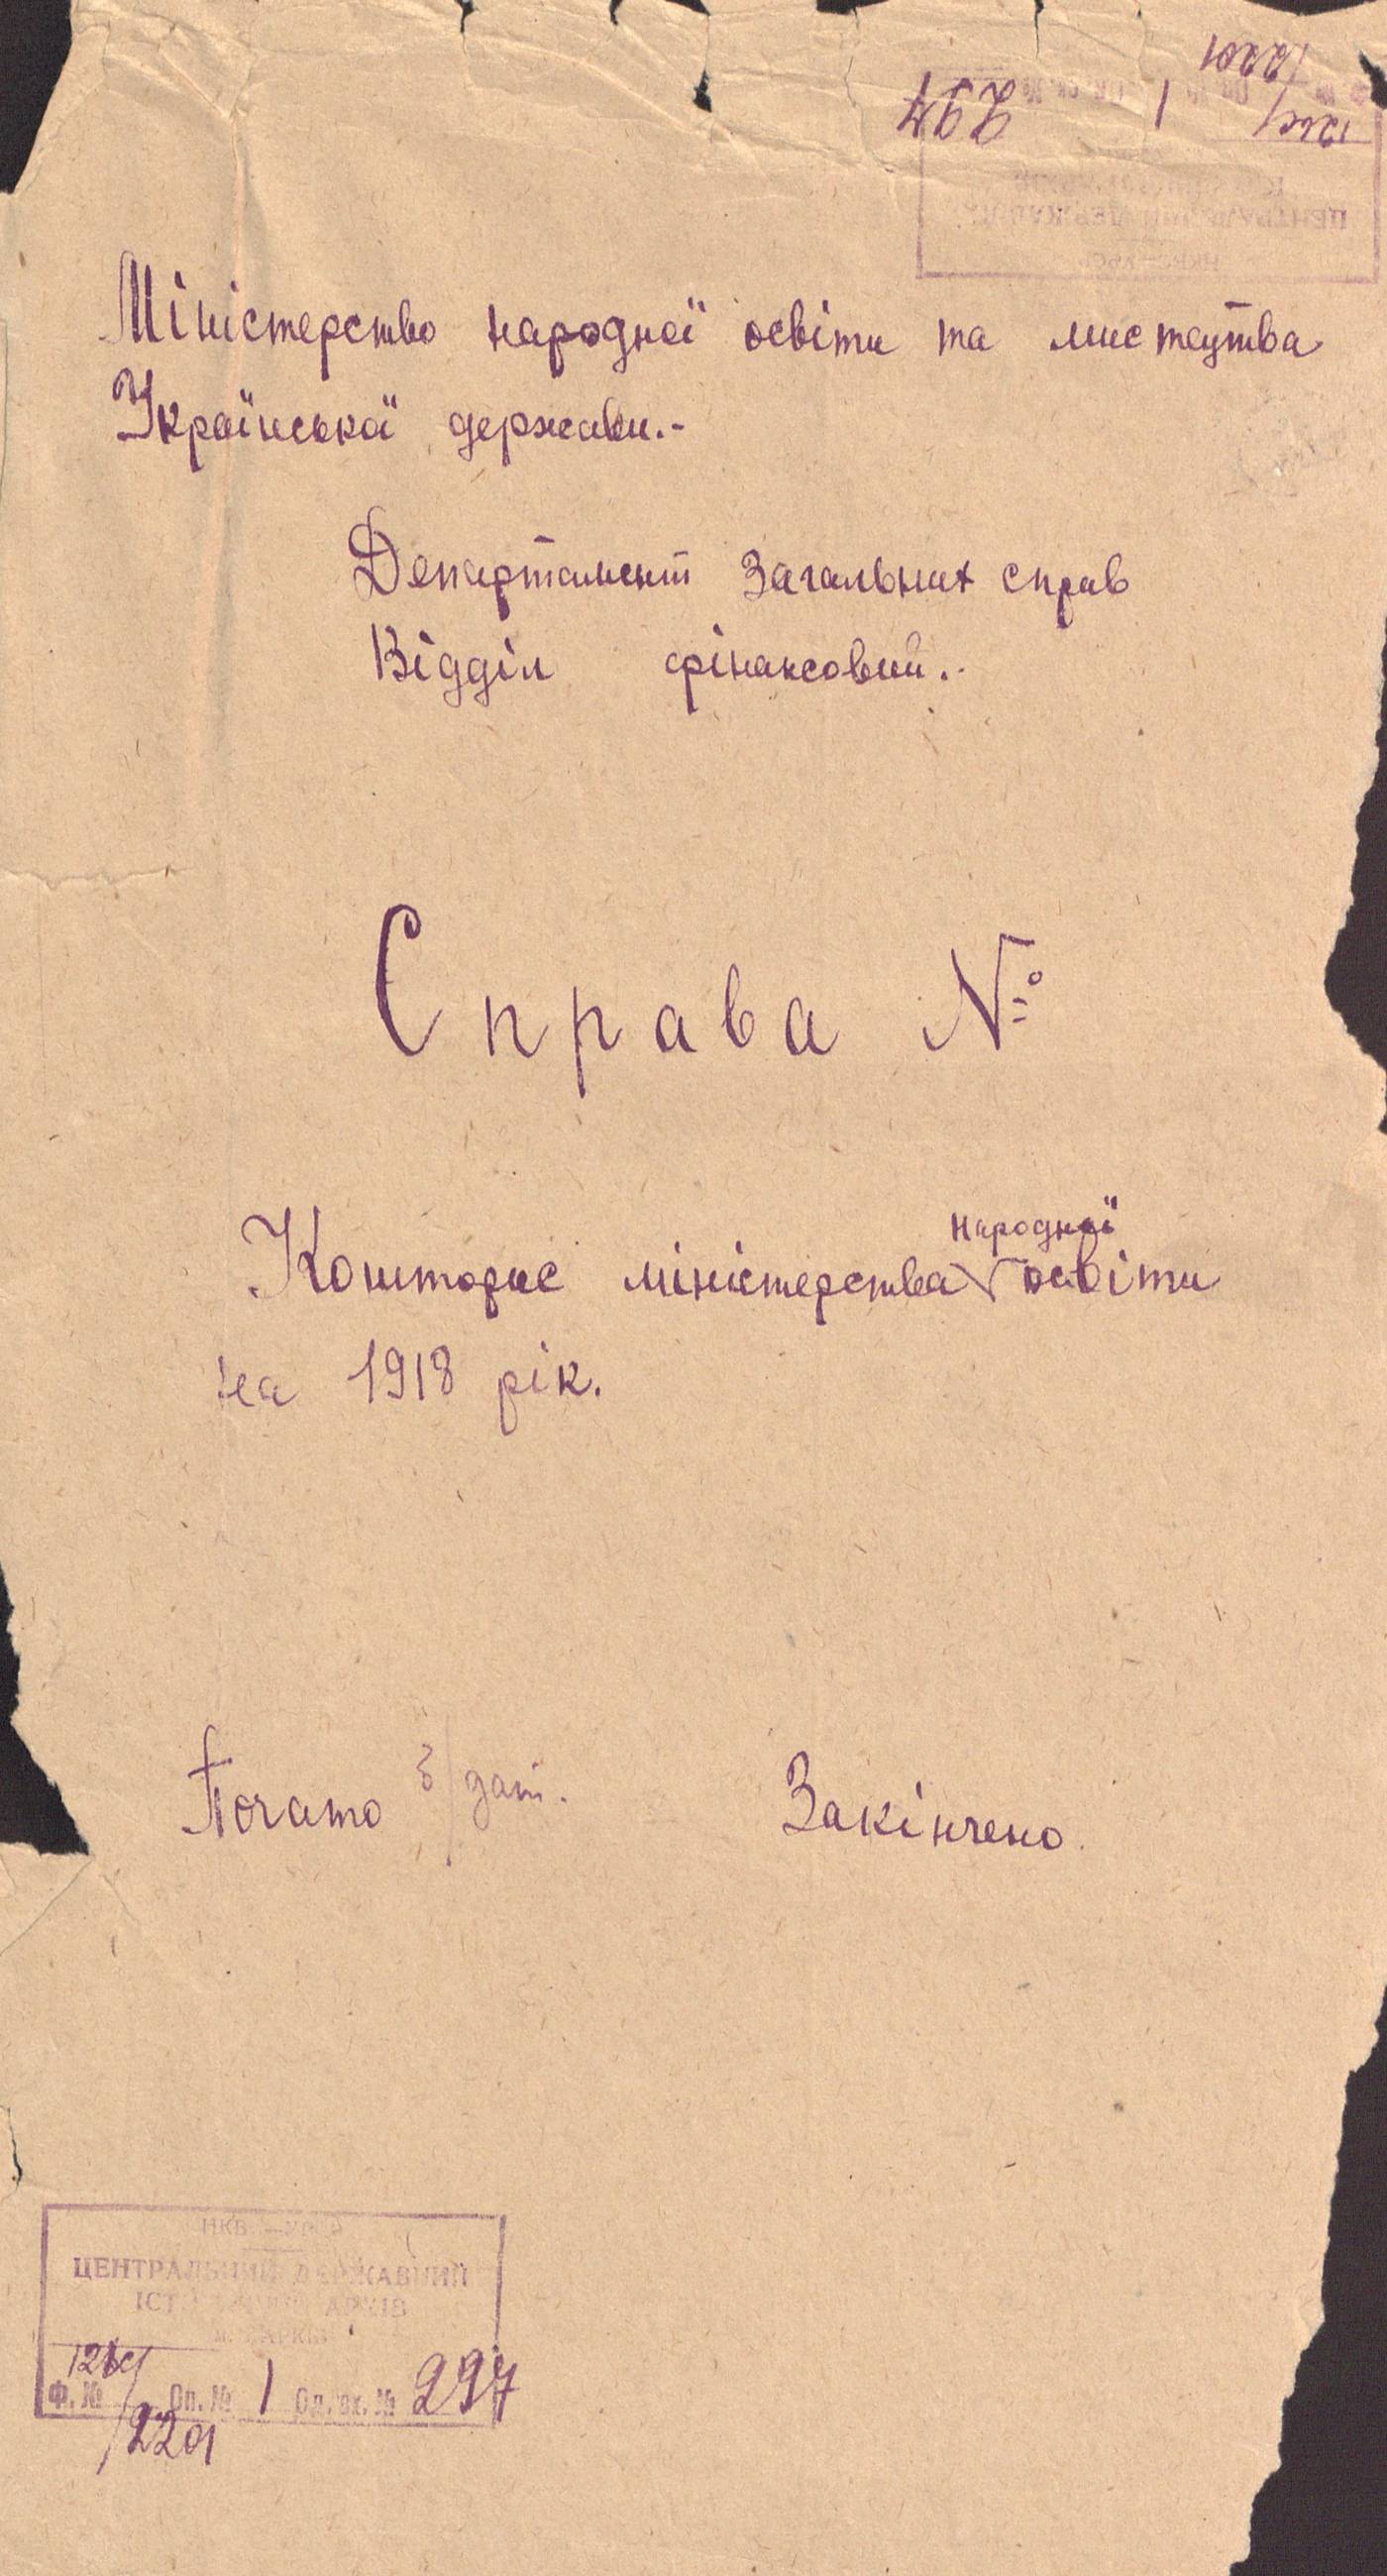 Міністерство народної освіти та мистецтва
Української держави.-
Департамент Загальних справ
Відділ фінансовий.-
Справа №
народньої
Кошторис міністерства освіти
на 1918 рік.
Почато б/дат.
Закінчено.
НКВС — УРСР
ЦЕНТРАЛЬНИЙ ДЕРЖАВНИЙ
ІСТ АРХІВ
м. ХАРКІВ
Ф. № Оп. № 1 Од. зх. № 297
2201